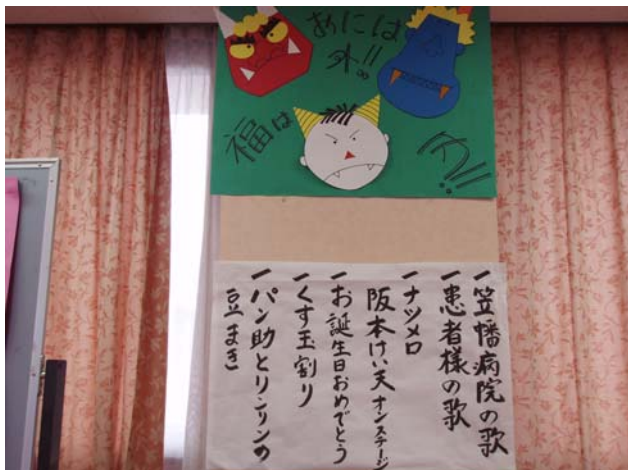 おには
外!!
福は
内!!
一笠幡病院の歌
一患者様の歌
一ナツメロ
阪本けい天オンステージ
一お誕生日おめでとう
一くす玉割り
一パン助とリンリンの
豆まき